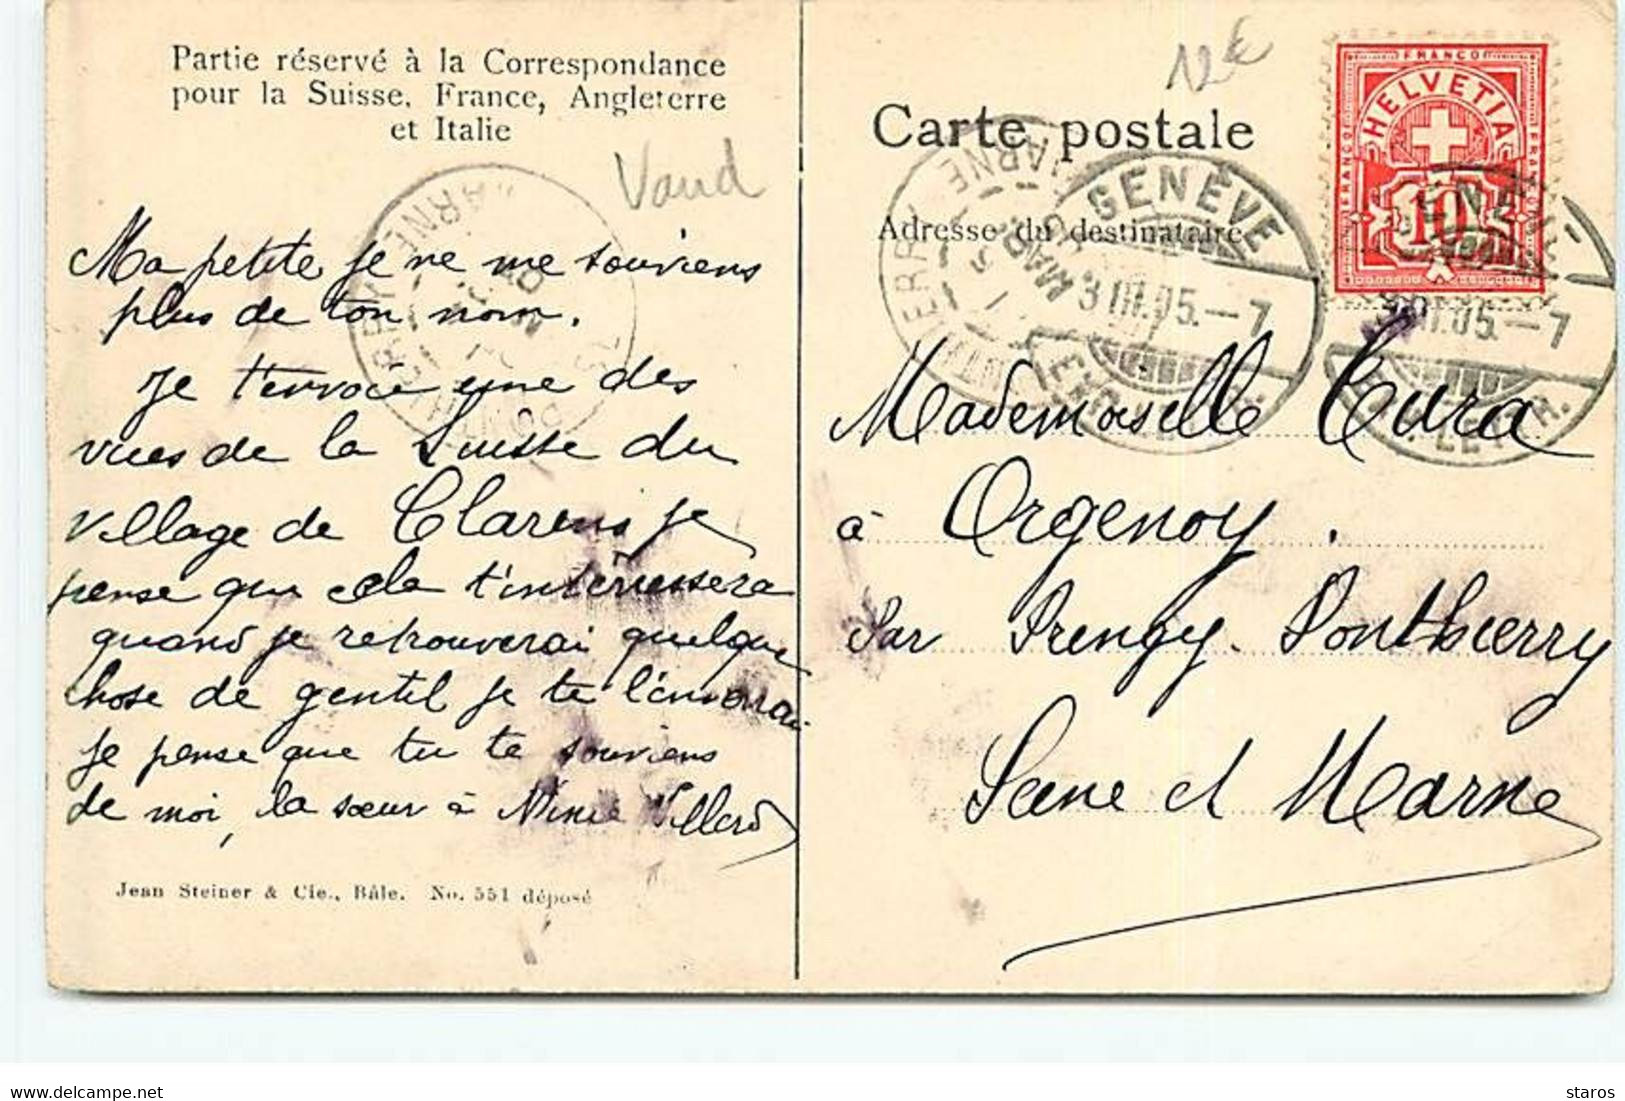 Partie réservé à la Correspondance
pour la Suisse, France, Angleterre
et Italie
Vaud
Ma petite je ne me souviens
plus de ton nom.
Je t'envoie une des
vues de la Suisse du
village de Clarens je
pense que cela t'intéressera
quand je retrouverai quelque
chose de gentil je te l'enverrai
je pense que tu te souviens
de moi, la sœur à Mimie Villard
Jean Steiner & Cie., Bâle. No. 551 déposé
Carte postale
Adresse du destinataire
FRANCO
HELVETIA
FRANCO
FRANCO
10
GENÈVE
3 III.05.–7
III.05.–7
Mademoiselle Cura
à Orgenoy.
Par Pringy. Ponthierry
Seine et Marne
staros